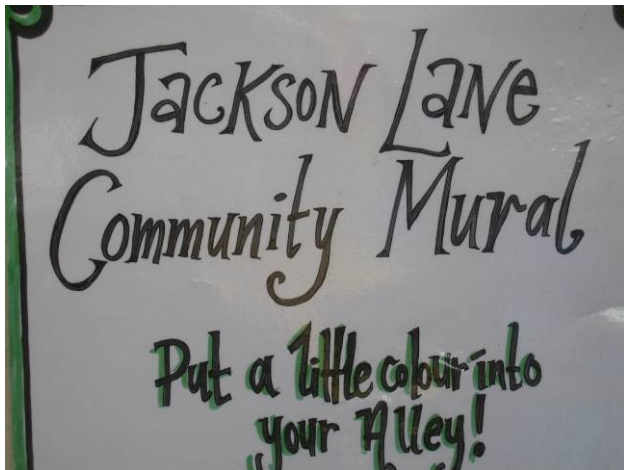 Jackson Lane
Community Mural
Put a little colour into
your Alley!